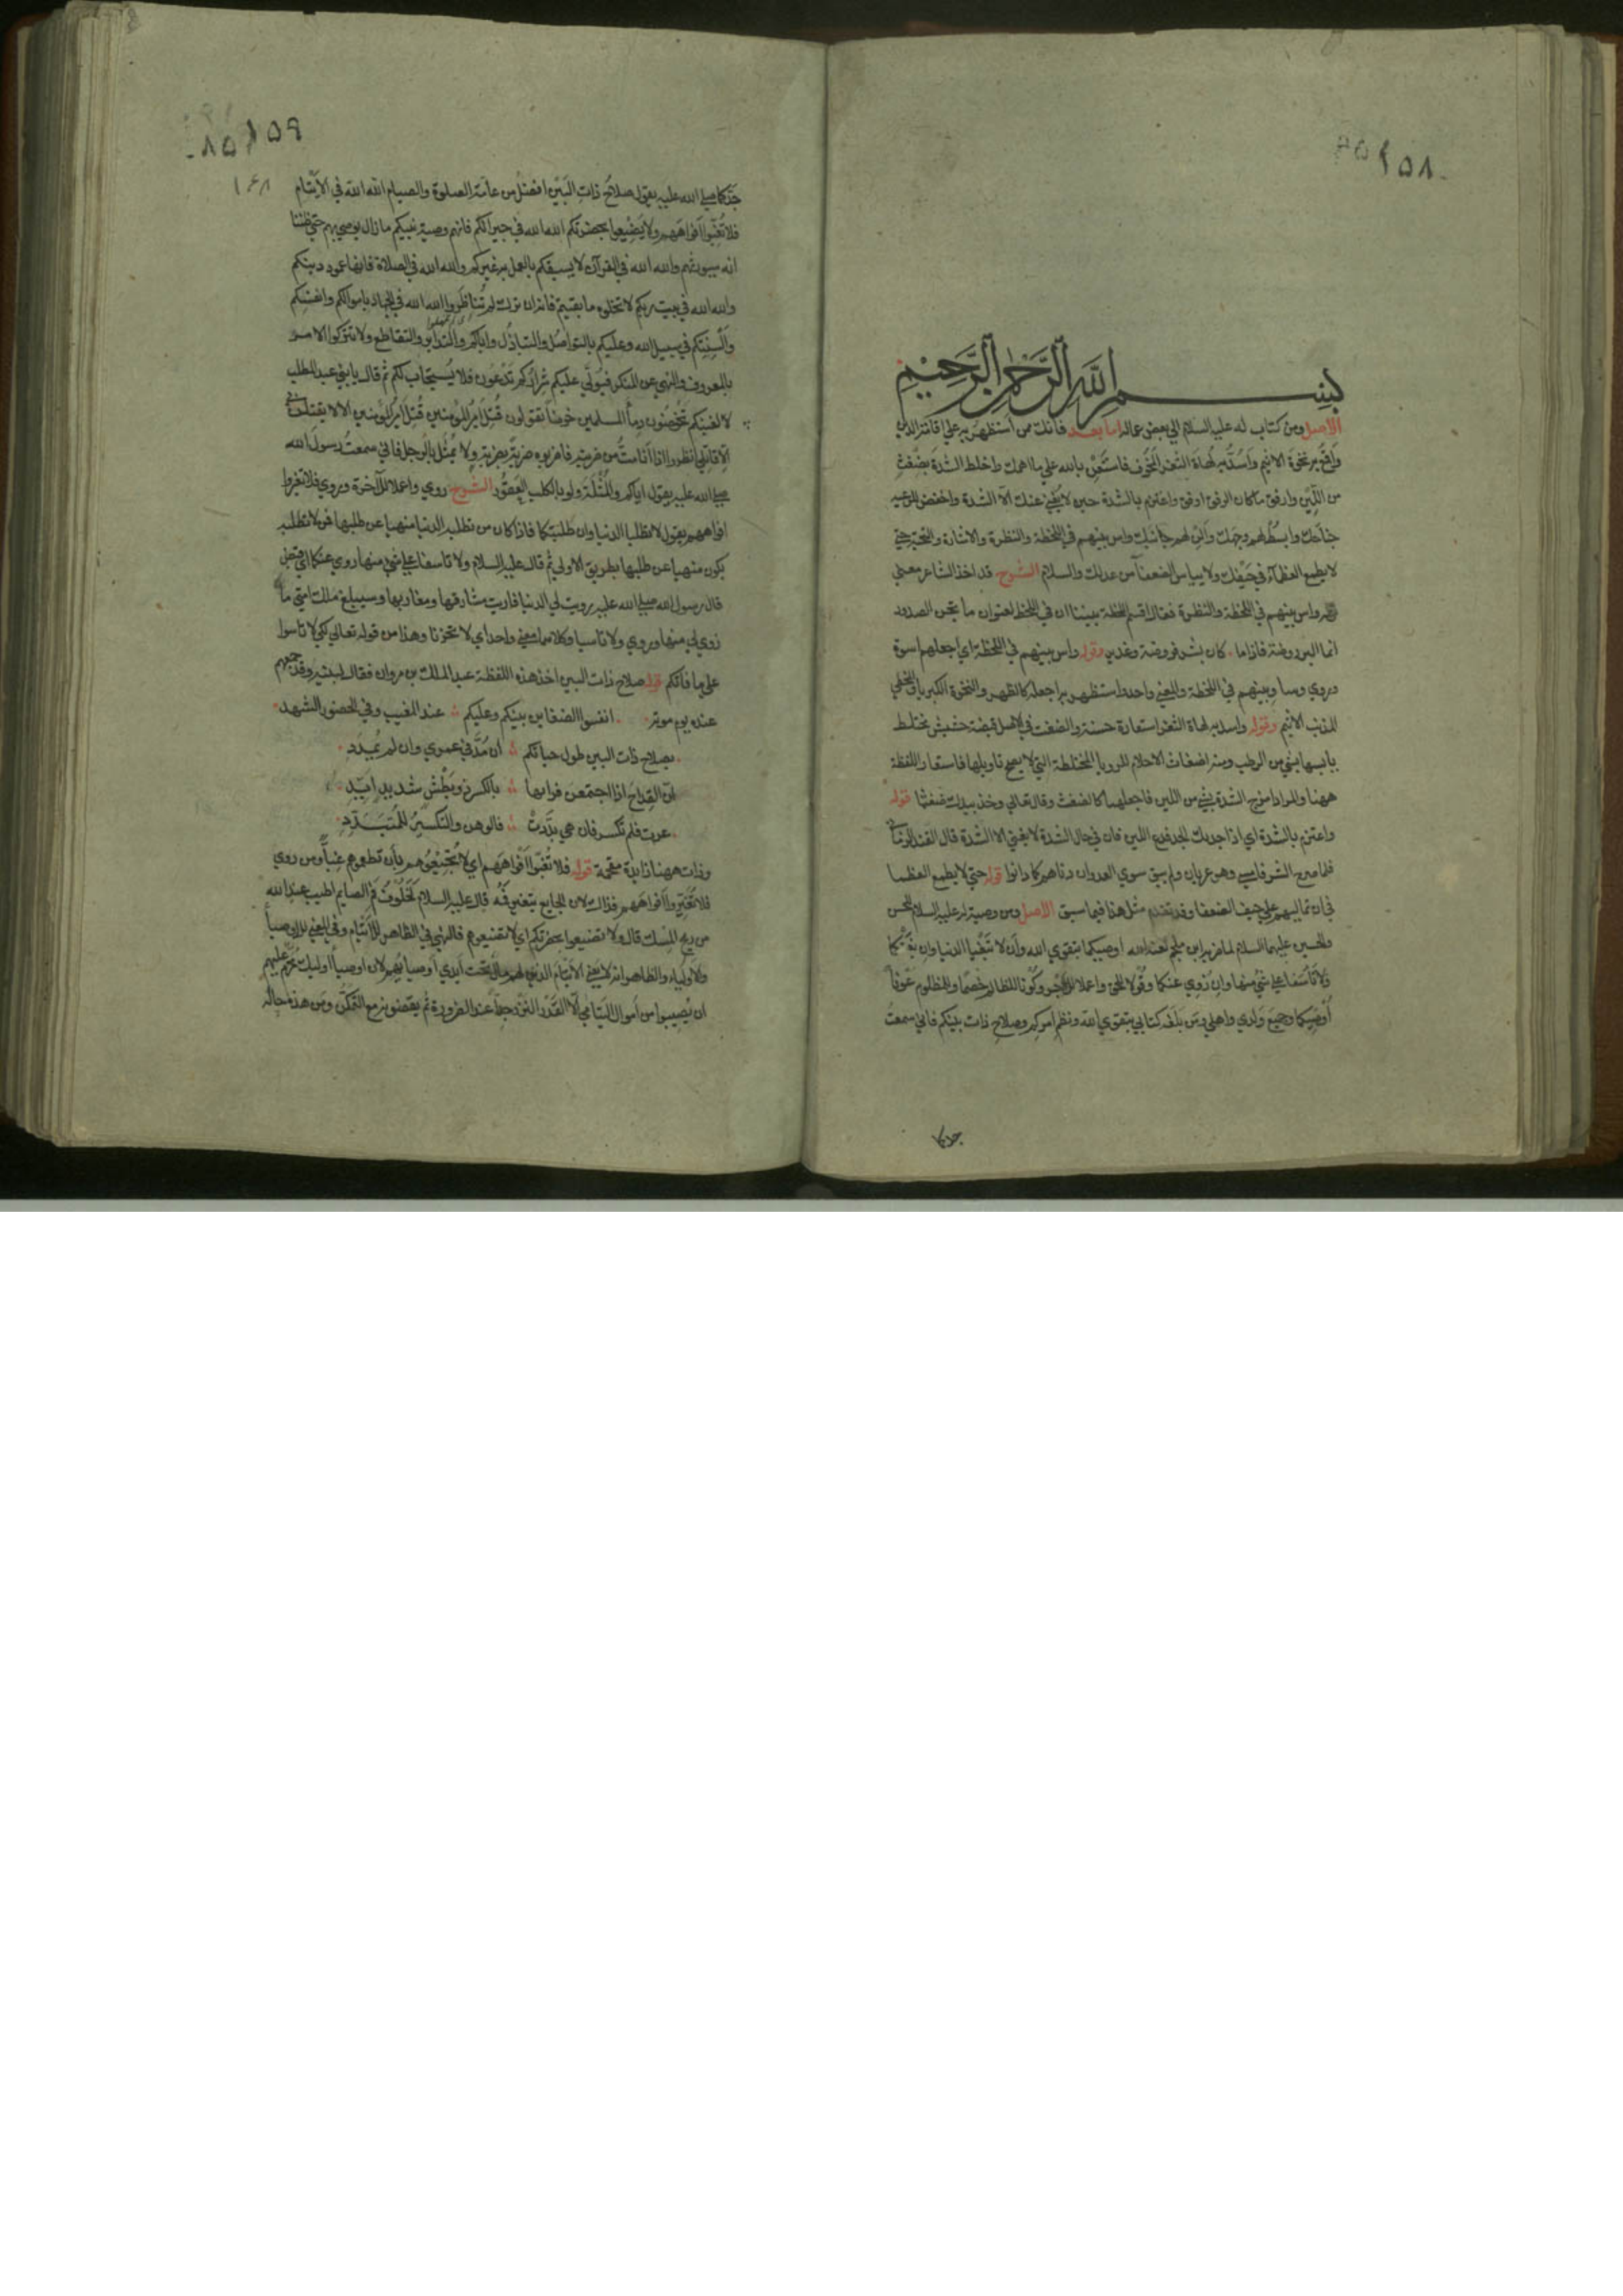 ١٥٨
بسم الله الرحمن الرحيم
الاصل ومن كتاب له عليه السلام الي بعض عماله اما بعد فانك ممن استظهر به علي اقامة الدين
واقمع به نخوة الاثيم واسد به لهاة الثغر المخوف فاستعن بالله علي ما اهمك واخلط الشدة بضغث
من اللين وارفق ماكان الرفق اوفق واعتزم بالشدة حين لا يغني عنك الا الشدة واخفض للرعية
جناحك وابسط لهم وجهك والن لهم جانبك واس بينهم في اللحظة والنظرة والاشارة والتحية حتي
لا يطمع العظماء في حيفك ولا يياس الضعفا من عدلك والسلام الشرح قد اخذ الشاعر معني
قوله واس بينهم في اللحظة والنظرة فقال اقسم اللحظة بيننا ان في اللحظ لعنوان ما تجن الصدور
انما البر روضة فاذا ما كان بشر فروضة وغدير وقوله واس بينهم في اللحظة اي اجعلهم اسوة
وروي وساو بينهم في اللحظة والمعني واحد واستظهر به اجعله كالظهر والنخوة الكبرياء
المذنب الاثيم وقوله واسد به لهاة الثغر استعارة حسنة والضغث في الاصل قبضة حشيش مختلط
يابسها بشي من الرطب ومنه اضغاث الاحلام للرويا المختلطة التي لا يصح تاويلها فاستعار اللفظة
ههنا والمراد امزج الشدة بشي من اللين فاجعلهما كالضغث وقال تعالي وخذ بيدك ضغثا قوله
واعتزم بالشدة اي اذا جد بك الجد فدع اللين فان في حال الشدة لا يغني الا الشدة قال الفند الزماني
فلما صرح الشر فامسي وهو عريان ولم يبق سوي العدوان دناهم كما دانوا قوله حتي لا يطمع العظما
في ان تماليهم علي حيف الضعفا وقد تقدم مثل هذا فيما سبق الاصل ومن وصية له عليه السلام للحسن
والحسين عليهما السلام لما ضربه ابن ملجم لعنه الله اوصيكما بتقوي الله وان لا تبغيا الدنيا وان بغتكما
ولا تأسفا علي شي منها وان زوي عنكما وقولا بالحق واعملا للاجر وكونا للظالم خصما وللمظلوم عونا
اوصيكما وجميع ولدي واهلي ومن بلغه كتابي بتقوي الله ونظم امركم وصلاح ذات بينكم فاني سمعت
جدكما
١٥٩
١٦٨
جدكما صلي الله عليه يقول صلاح ذات البين افضل من عامة الصلوة والصيام الله الله في الايتام
فلا تغبوا افواههم ولا يضيعوا بحضرتكم الله الله في جيرانكم فانهم وصية نبيكم مازال يوصي بهم حتي ظننا
انه سيورثهم والله الله في القرآن لا يسبقكم بالعمل به غيركم والله الله في الصلاة فانها عمود دينكم
والله الله في بيت ربكم لا تخلوه ما بقيتم فانه ان ترك لم تناظروا الله الله في الجهاد باموالكم وانفسكم
والسنتكم في سبيل الله وعليكم بالتواصل والتباذل واياكم والتدابر والتقاطع ولا تتركوا الامر
بالمعروف والنهي عن المنكر فيولي عليكم شراركم ثم تدعون فلا يستجاب لكم ثم قال يا بني عبد المطلب
لا الفينكم تخوضون دماء المسلمين خوضا تقولون قتل امير المؤمنين قتل امير المؤمنين الا لا يقتلن بي
الا قاتلي انظروا اذا انا مت من ضربته فاضربوه ضربة بضربة ولا يمثل بالرجل فاني سمعت رسول الله
صلي الله عليه يقول اياكم والمثلة ولو بالكلب العقور الشرح روي واعملا للآخرة وروي فلا تغيروا
افواههم يقول لا تطلبا الدنيا وان طلبتكما فاذا كان من تطلبه الدنيا منهيا عن طلبها فمن لا تطلبه
يكون منهيا عن طلبها بطريق الاولي ثم قال عليه السلام ولا تاسفا علي شي منها زوي عنكما اي قبض
قال رسول الله صلي الله عليه زويت لي الدنيا فاريت مشارقها ومغاربها وسيبلغ ملك امتي ما
زوي لي منها وروي ولا تاسيا وكلاهما بمعني واحد اي لا تحزنا وهذا من قوله تعالي لكيلا تاسوا
علي ما فاتكم قوله صلاح ذات البين اخذ هذه اللفظة عبد الملك بن مروان فقال لبنيه وقد جمعهم
عنده يوم موته انفسوا الضغاين بينكم وعليكم عند المغيب وفي الحضور الشهد
بصلاح ذات البين طول حياتكم ان مد في عمري وان لم يمدد
ان القداح اذا اجتمعن فرامها بالكسر ذو بطش شديد ايد
عزت فلم تكسر فان هي بددت فالوهن والتكسير للمتبدد
وذات ههنا زايدة مقحمة قوله فلا تغبوا افواههم اي لا تجيعوهم بان تطعموهم غبا ومن روي
فلا تغيروا افواههم فذاك لان الجايع يتغير فمه قال عليه السلام لخلوف فم الصايم اطيب عند الله
من ريح المسك قال ولا تضيعوا بحضرتكم اي لا تضيعوهم فالنهي في الظاهر للايتام وفي المعني للاوصياء
والاولياء والظاهر انه لا يعني الايتام الذين لهم مال تحت ايدي اوصيائهم لان اوصياء اوليك محرم عليهم
ان يصيبوا من اموال اليتامي الا القدر النزر جدا عند الضرورة ثم يقضونه مع التمكن ومن هذه حاله